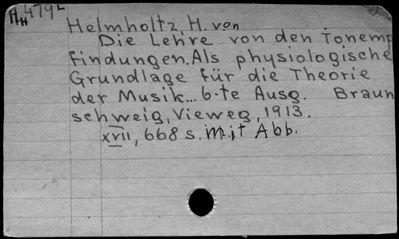 A 479L
H
Helmholtz, H. von
Die Lehre von den Tonemp
findungen. Als physiologische
Grundlage für die Theorie
der Musik... 6-te Ausg. Braun
schweig, Vieweg, 1913.
XVII, 668 s. mit Abb.